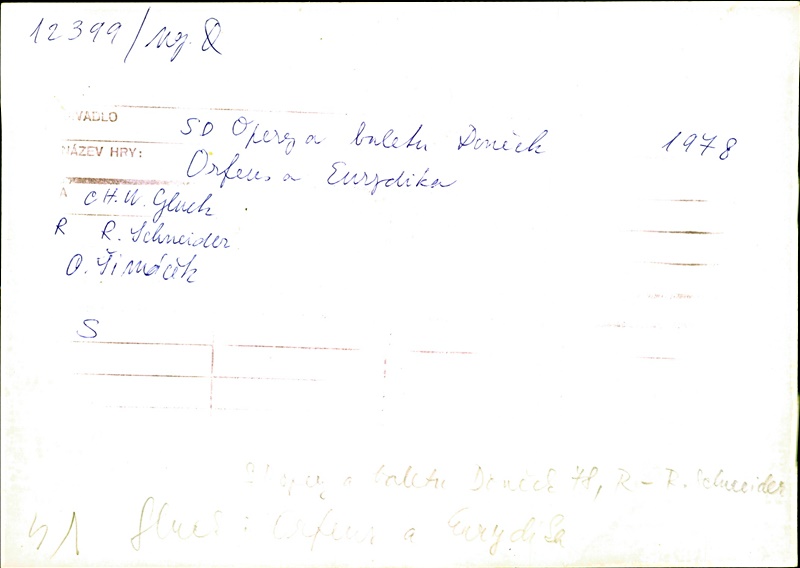 12399/neg. Q
DIVADLO SD Opery a baletu Doněck 1978
NÁZEV HRY: Orfeus a Eurydika
A CH. W. Gluck
R R. Schneider
O. Šimáček
S
SD opery a baletu Doněck 78, R - R. Schneider
Gluck : Orfeus a Eurydika